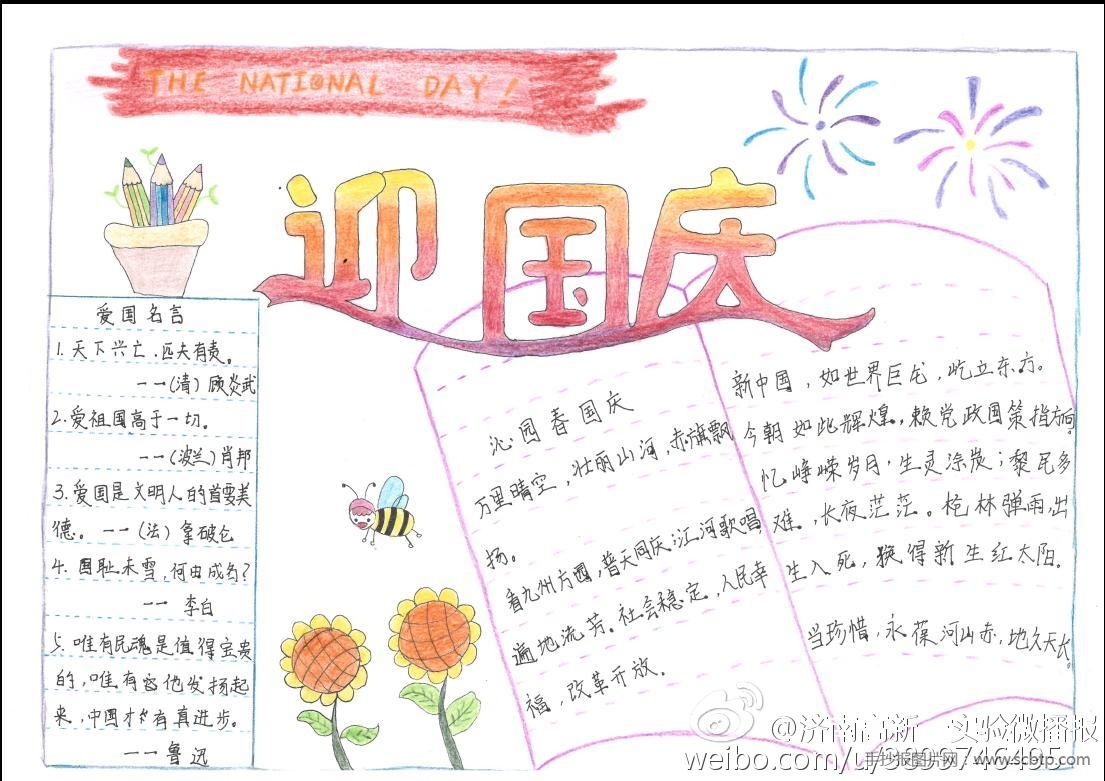 THE NATIONAL DAY!
迎国庆
爱国名言
1.天下兴亡,匹夫有责。
——(清)顾炎武
2.爱祖国高于一切。
——(波兰)肖邦
3.爱国是文明人的首要美
德。——(法)拿破仑
4.国耻未雪,何由成名?
——李白
5.唯有民魂是值得宝贵
的,唯有它他发扬起
来,中国才有真进步。
——鲁迅
沁园春国庆
万里晴空,壮丽山河,赤旗飘
扬。
看九州方圆,普天同庆;江河歌唱
遍地流芳。社会稳定,人民幸
福,改革开放。
新中国,如世界巨龙,屹立东方。
今朝如此辉煌,赖党政国策指方向。
忆峥嵘岁月,生灵涂炭;黎民多
难,长夜茫茫。枪林弹雨出
生入死,换得新生红太阳。
当珍惜,永葆河山赤,地久天长。
@济南高新一实验微播报
手抄报图片网 www.scbtp.com